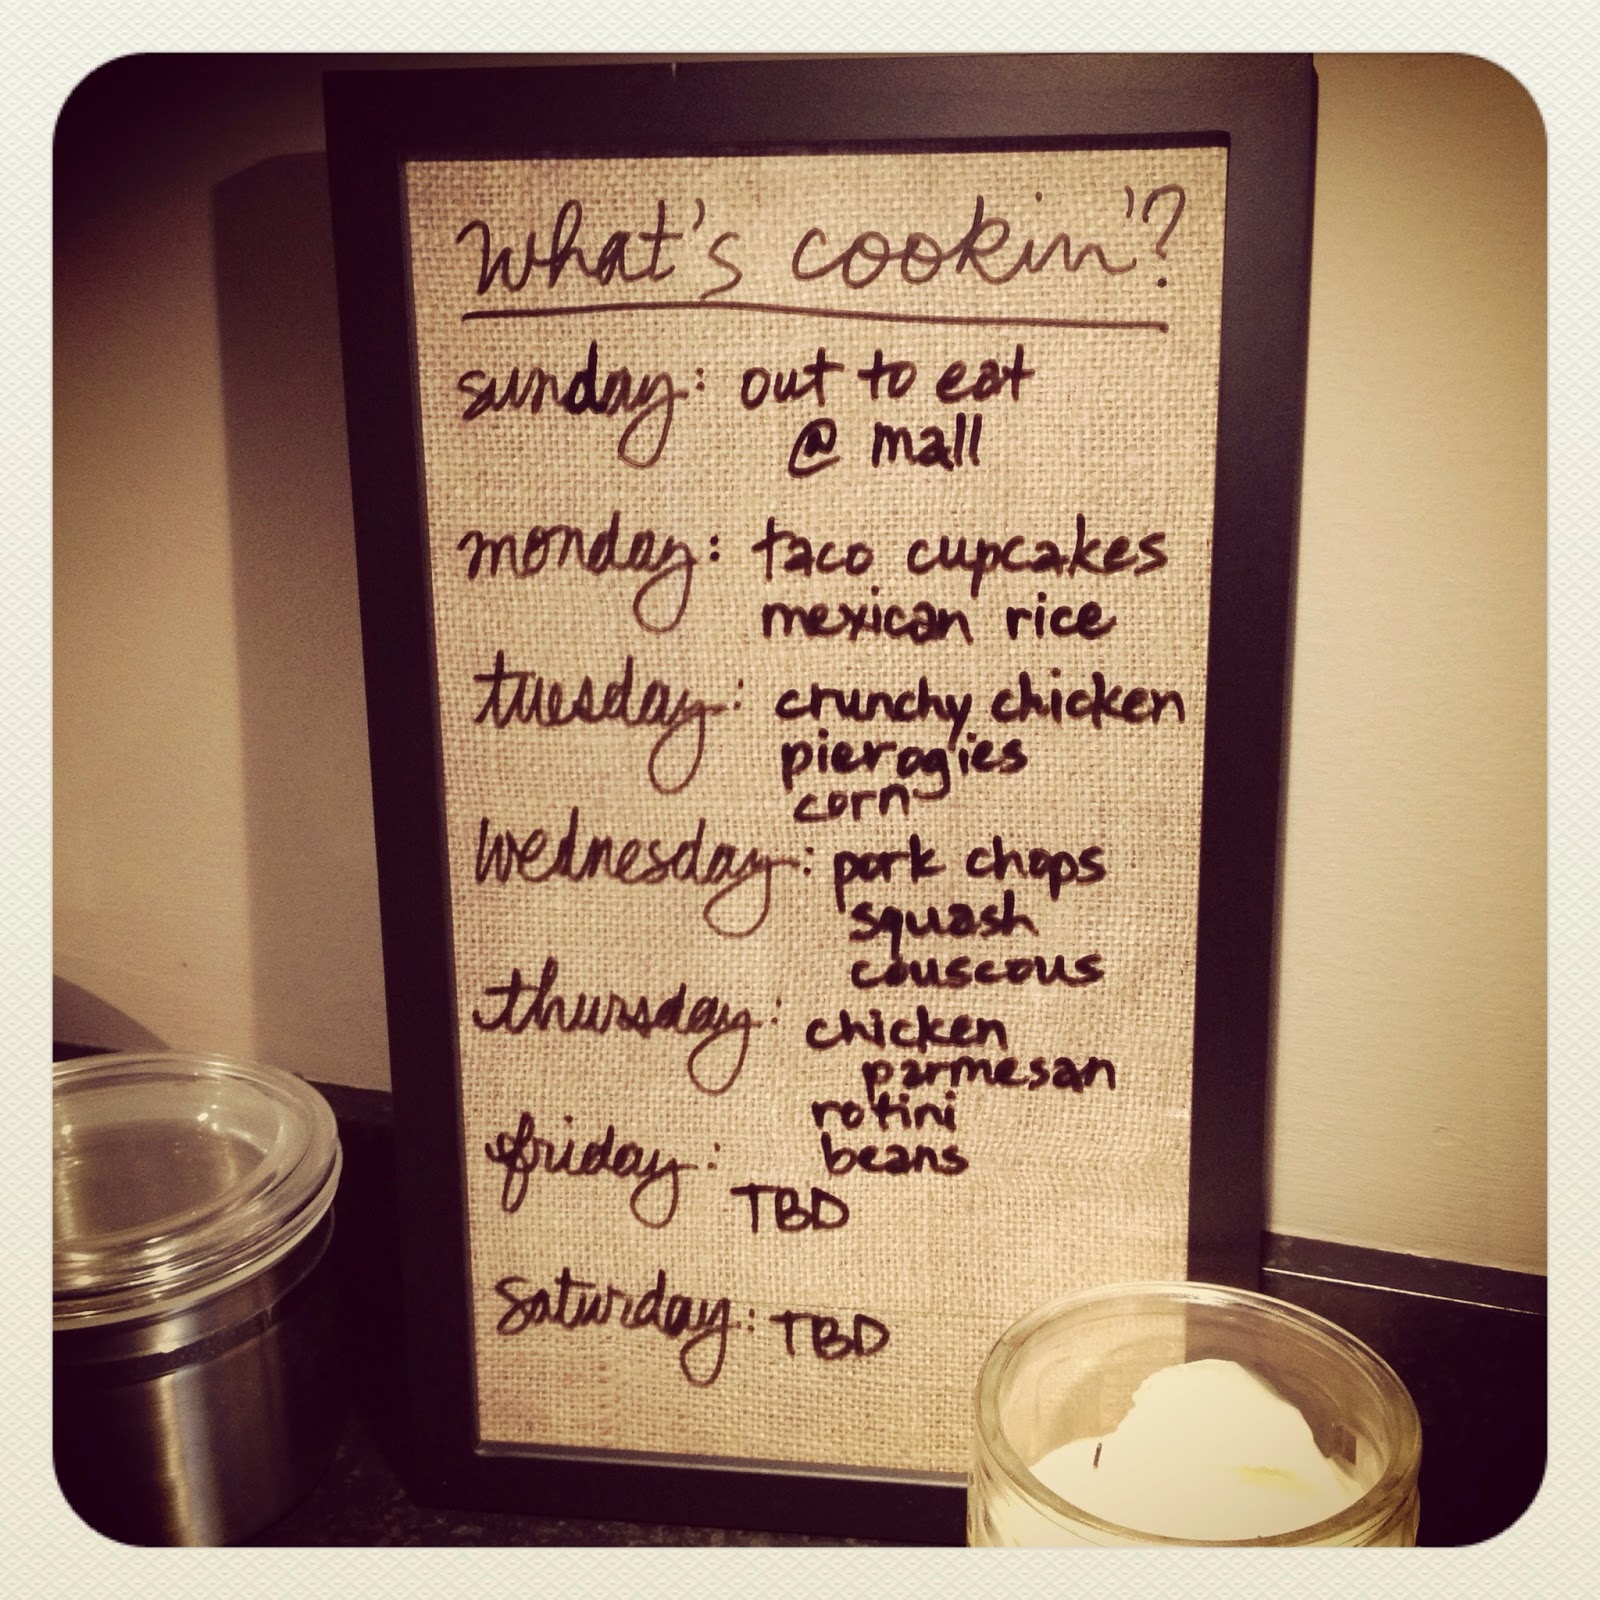 what's cookin'?
sunday: out to eat
@ mall
monday: taco cupcakes
mexican rice
tuesday: crunchy chicken
pierogies
corn
wednesday: pork chops
squash
couscous
thursday: chicken
parmesan
rotini
beans
friday: TBD
saturday: TBD